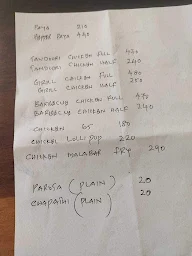 PEPPER PAYA 430
TANDOORI CHICKEN FULL 430
TANDOORI CHICKEN HALF 240
GIRILL CHICKEN FULL 480
GIRILL CHICKEN HALF 250
BARBACUE CHICKEN FULL 470
BARBACUE CHICKEN HALF 240
CHICKEN 65 180
CHICKEN LOLLIPOP 220
CHICKEN MALABAR FRY 290
PAROTA (PLAIN) 20
CHAPATHI (PLAIN) 20